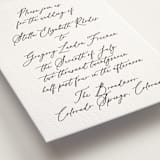 Please join us
for the wedding of
Stella Elizabeth Rhodes
to
Gregory Landon Freeman
the Seventh of July
two thousand twenty
half past four in the afternoon
The Broadmoor
Colorado Springs, Colorado